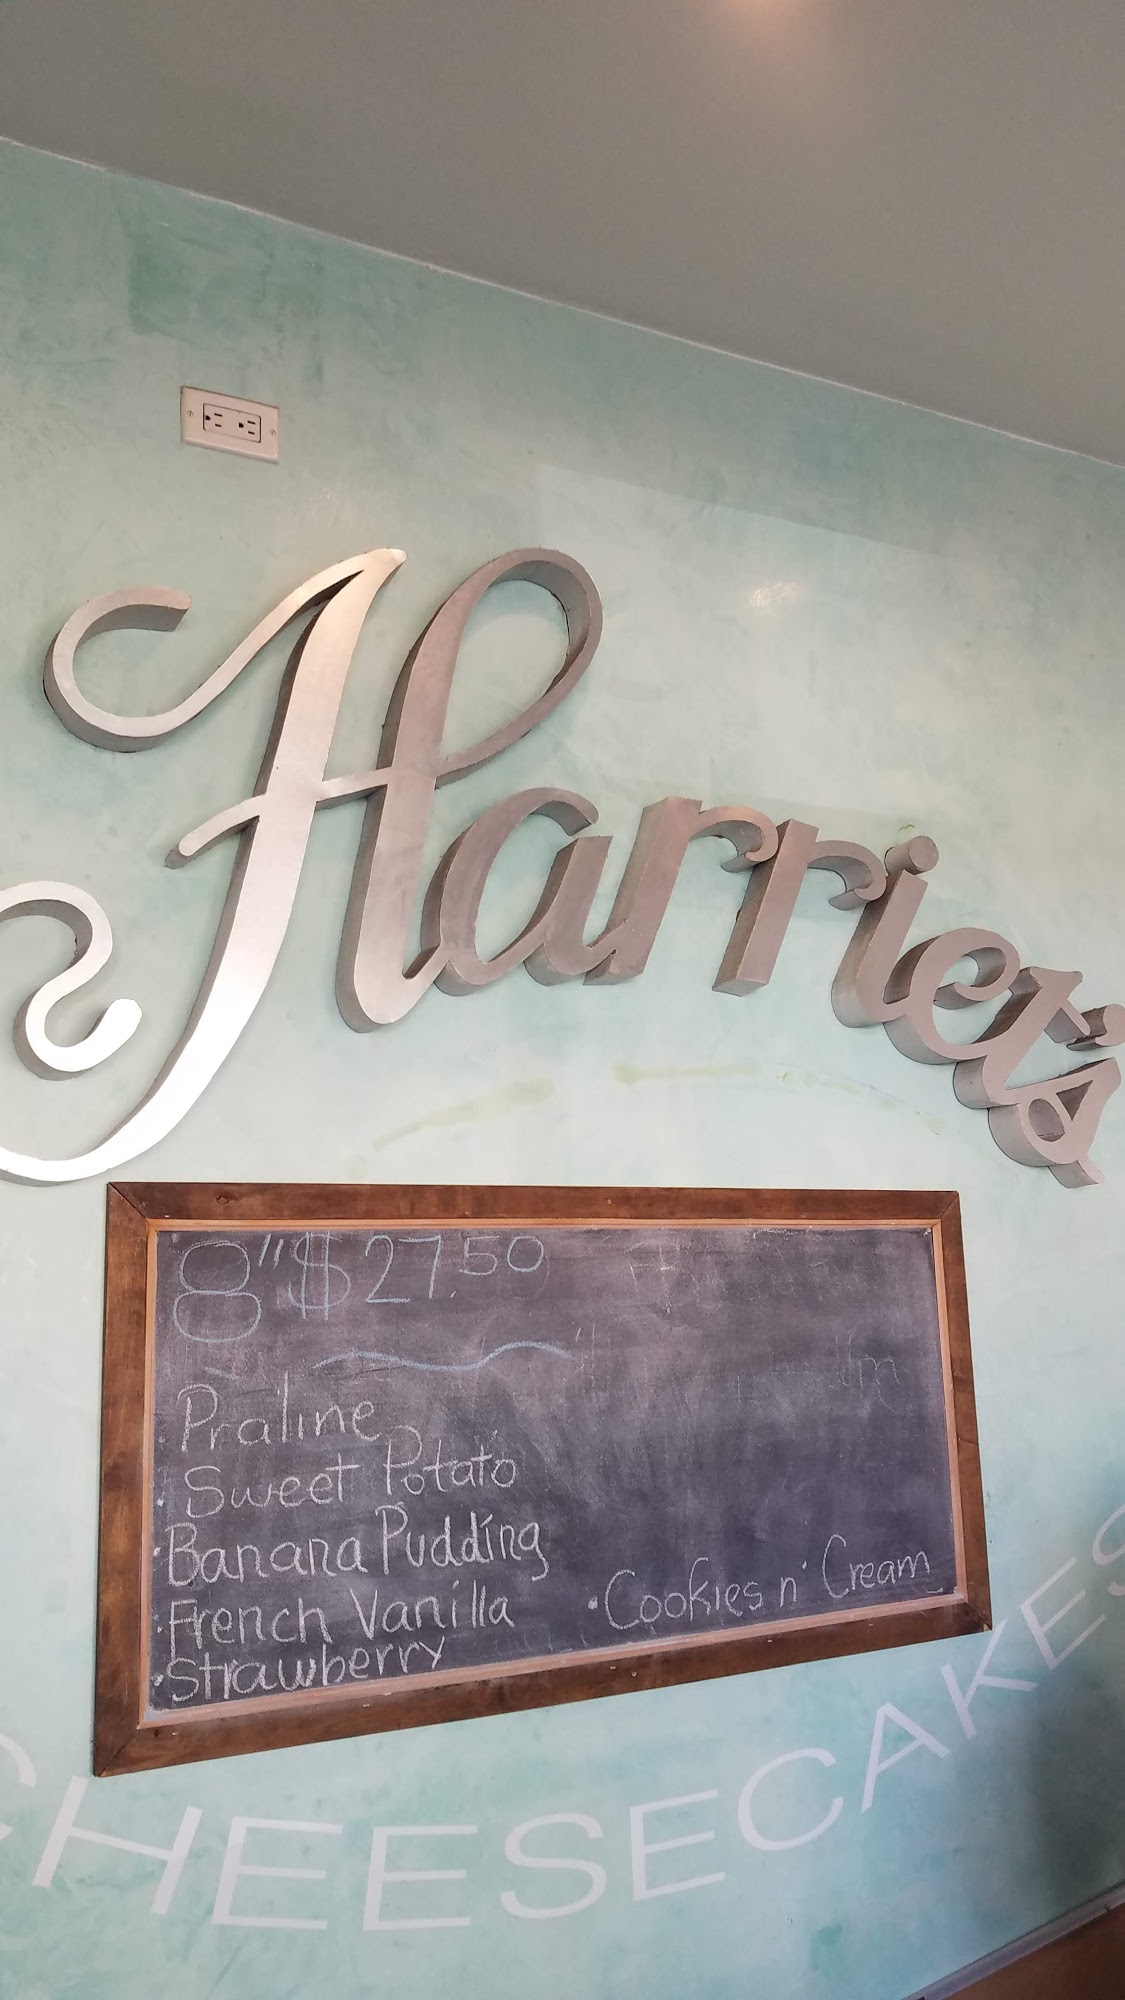 Harriet's
8" $27.50
· Praline
· Sweet Potato
· Banana Pudding
· French Vanilla
· Strawberry
· Cookies n' Cream
CHEESECAKES